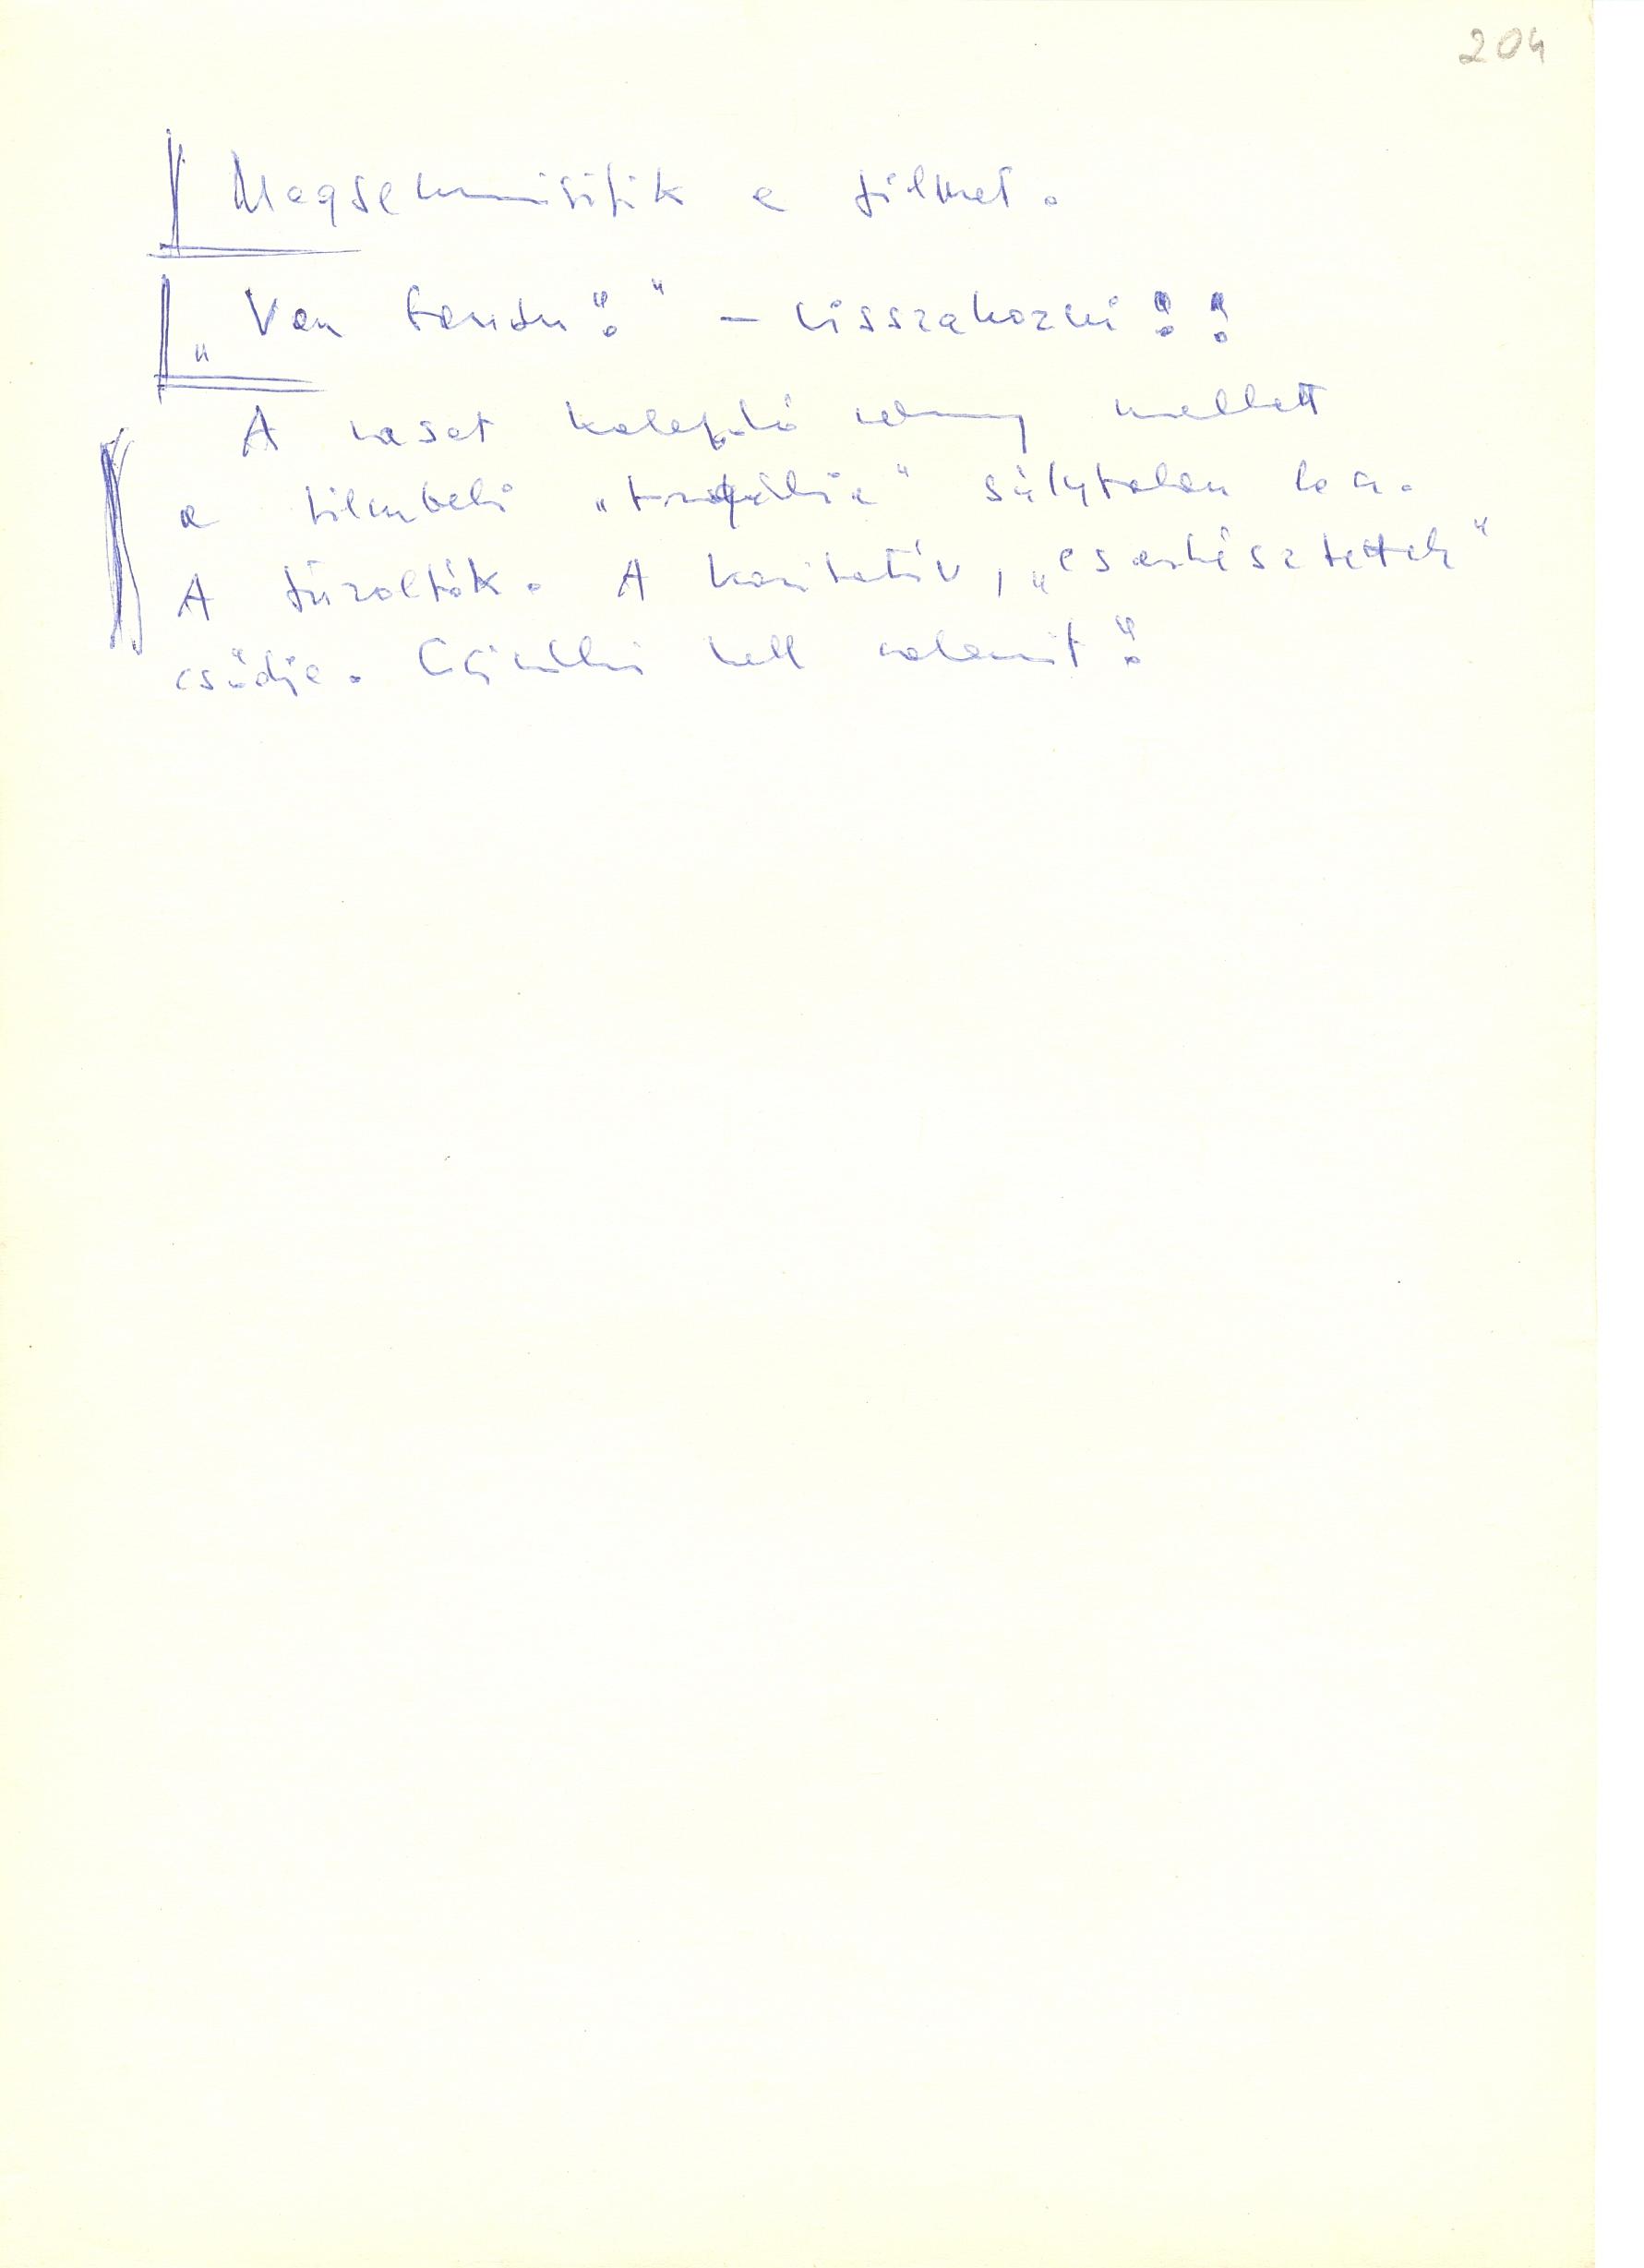 204
Megsemmisitik a filmet.
„Van tanú?" – visszahozni!!
A vasat kalapáló mellett
a filmbeli „tragédia" súlytalan lea.
A tűzoltók. A karitatív, „cserkésztettek"
csődje. Csinálni kell valamit!